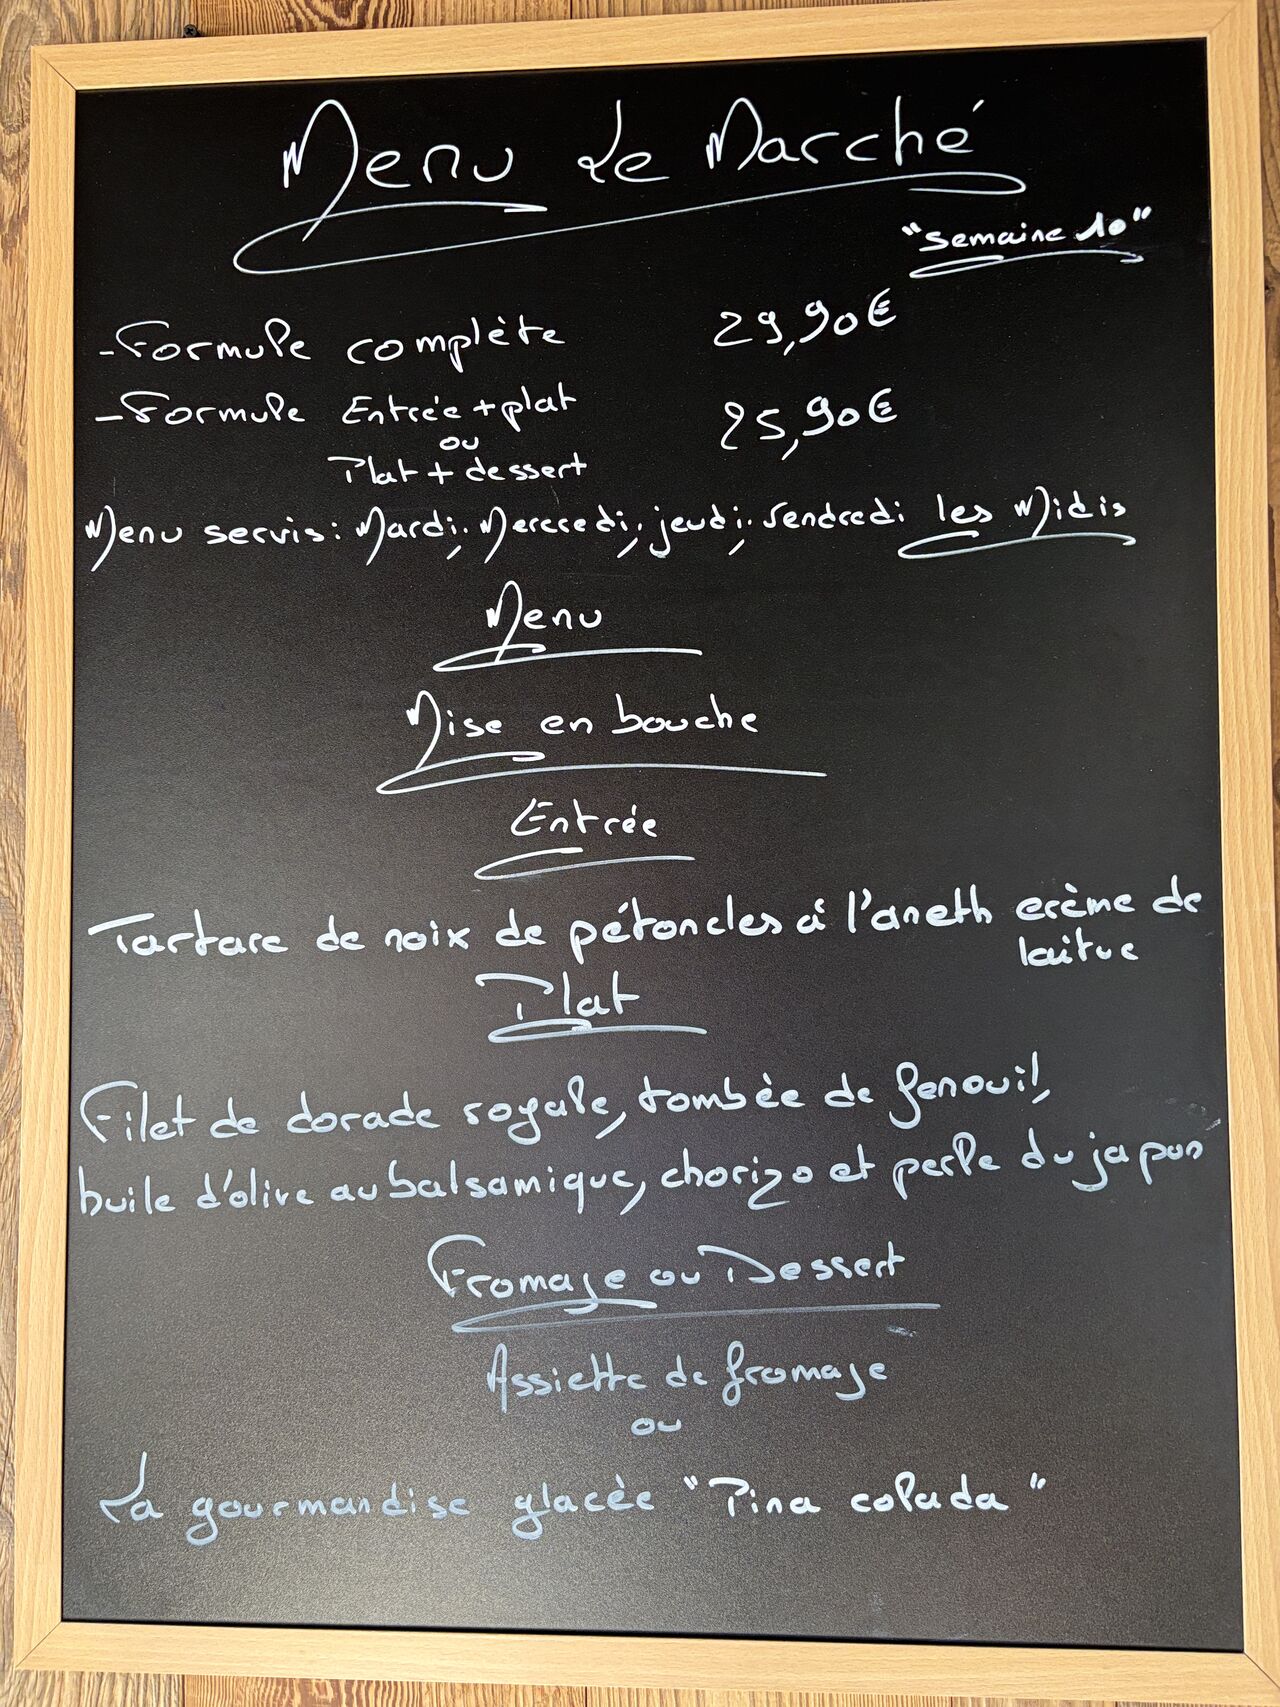 Menu Le Marché
"semaine 10"
- Formule complète 29,90€
- Formule Entrée + plat 25,90€
ou
Plat + dessert
Menu servis : Mardi, Mercredi, jeudi, Vendredi les Midis
Menu
Mise en bouche
Entrée
Tartare de noix de pétoncles à l'aneth crème de
laitue
Plat
Filet de dorade royale, tombée de fenouil,
huile d'olive au balsamique, chorizo et perle du japon
Fromage ou Dessert
Assiette de fromage
ou
La gourmandise glacée "Pina colada"